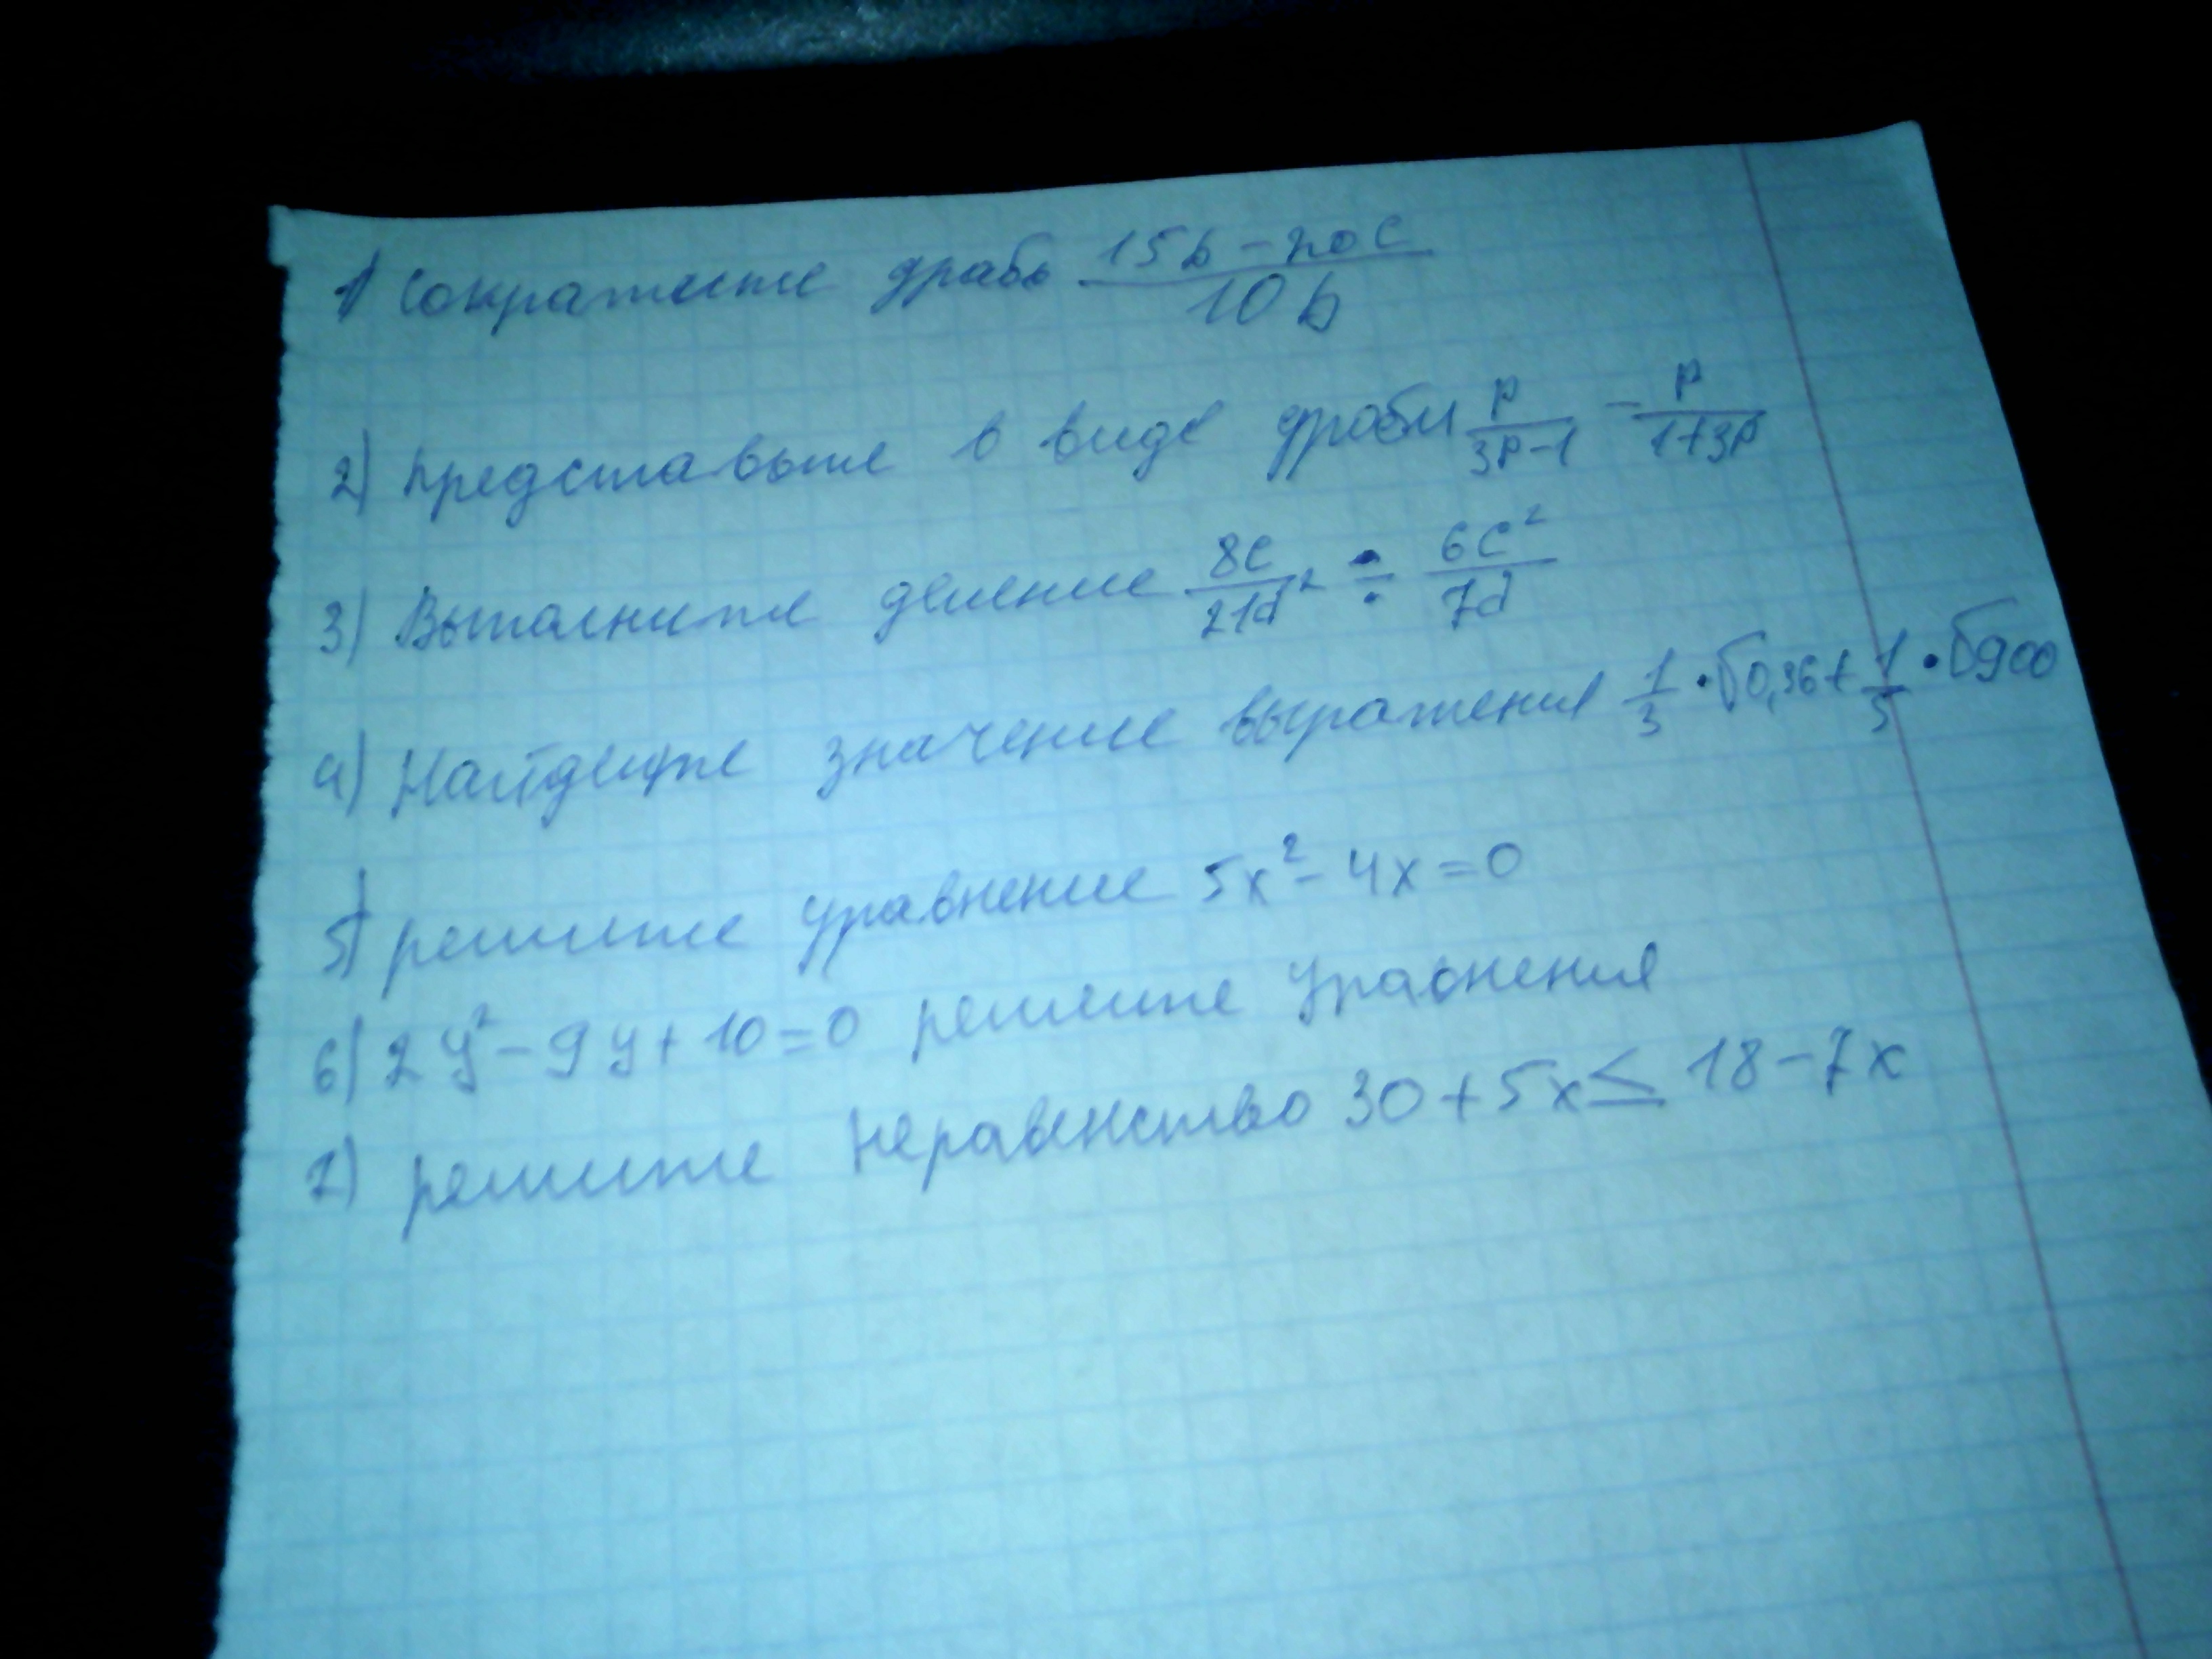 1) Сократите дробь (15b - 20c)/(10b)
2) Представьте в виде дроби p/(3p-1) - p/(1+3p)
3) Выполните деление 8c/(21d²) ÷ 6c²/(7d)
4) Найдите значение выражения 1/3 • √0,36 + 1/5 • √900
5) решите уравнение 5x² - 4x = 0
6) 2y² - 9y + 10 = 0 решите уравнения
7) решите неравенство 30 + 5x ≤ 18 - 7x